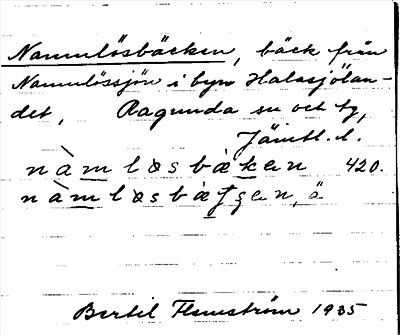 Namnlösbäcken, bäck från
Namnlössjön i byn Halasjölan-
det, Ragunda sn och tg,
Jämtl. l.
nàmløsbàken 420.
nàmløsbàʈʂen, ä
Bertil Flemström 1935